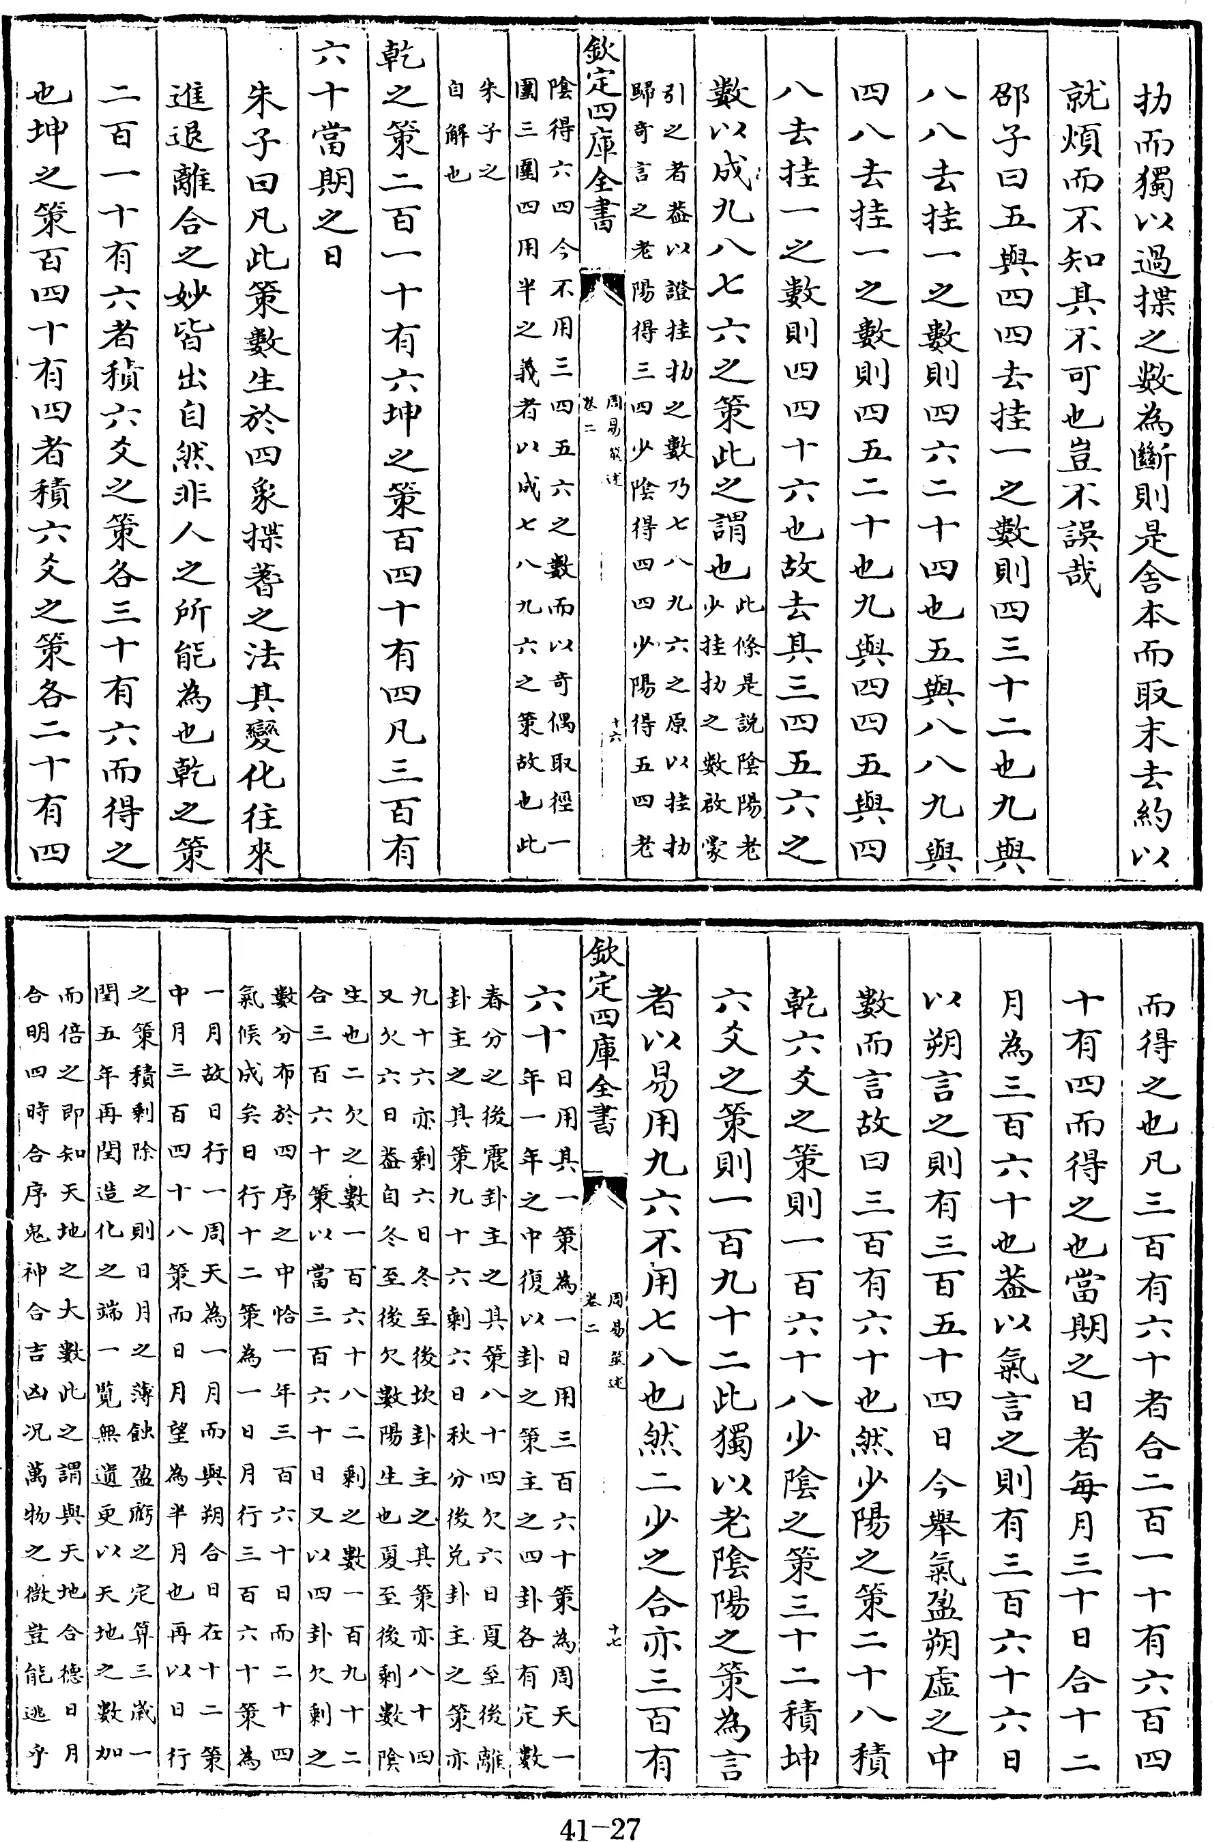 扐而獨以過揲之數為斷則是舍本而取末去約以
就煩而不知其不可也豈不誤哉
邵子曰五與四四去挂一之數則四三十二也九與
八八去挂一之數則四六二十四也五與八八九與
四八去挂一之數則四五二十也九與四四五與四
八去挂一之數則四四十六也故去其三四五六之
數以成九八七六之策此之謂也此條是說陰陽老
少挂扐之數啟蒙
引之者葢以證挂扐之數乃七八九六之原以挂扐
歸奇言之老陽得三四少陰得四四少陽得五四老
欽定四庫全書
周易箋述
卷二
十六
陰得六四今不用三四五六之數而以奇偶取徑一
圍三圍四用半之義者以成七八九六之策故也此
朱子之
自解也
乾之策二百一十有六坤之策百四十有四凡三百有
六十當期之日
朱子曰凡此策數生於四象揲蓍之法其變化往來
進退離合之妙皆出自然非人之所能為也乾之策
二百一十有六者積六爻之策各三十有六而得之
也坤之策百四十有四者積六爻之策各二十有四
而得之也凡三百有六十者合二百一十有六百四
十有四而得之也當期之日者每月三十日合十二
月為三百六十也葢以氣言之則有三百六十六日
以朔言之則有三百五十四日今舉氣盈朔虛之中
數而言故曰三百有六十也然少陽之策二十八積
乾六爻之策則一百六十八少陰之策三十二積坤
六爻之策則一百九十二此獨以老陰陽之策為言
者以易用九六不用七八也然二少之合亦三百有
欽定四庫全書
周易箋述
卷二
十七
六十日用其一策為一日用三百六十策為周天一
年一年之中復以卦之策主之四卦各有定數
春分之後震卦主之其策八十四欠六日夏至後離
卦主之其策九十六剩六日秋分後兌卦主之策亦
九十六亦剩六日冬至後坎卦主之其策亦八十四
又欠六日葢自冬至後欠數陽生也夏至後剩數陰
生也二欠之數一百六十八二剩之數一百九十二
合三百六十策以當三百六十日又以四卦欠剩之
數分布於四序之中恰一年三百六十日而二十四
氣候成矣日行十二策為一日月行三百六十策為
一月故日行一周天為一月而與朔合日在十二策
中月三百四十八策而日月望為半月也再以日行
之策積剩除之則日月之薄蝕盈虧之定算三歲一
閏五年再閏造化之端一覽無遺更以天地之數加
而倍之即知天地之大數此之謂與天地合德日月
合明四時合序鬼神合吉凶况萬物之微豈能逃乎
41-27